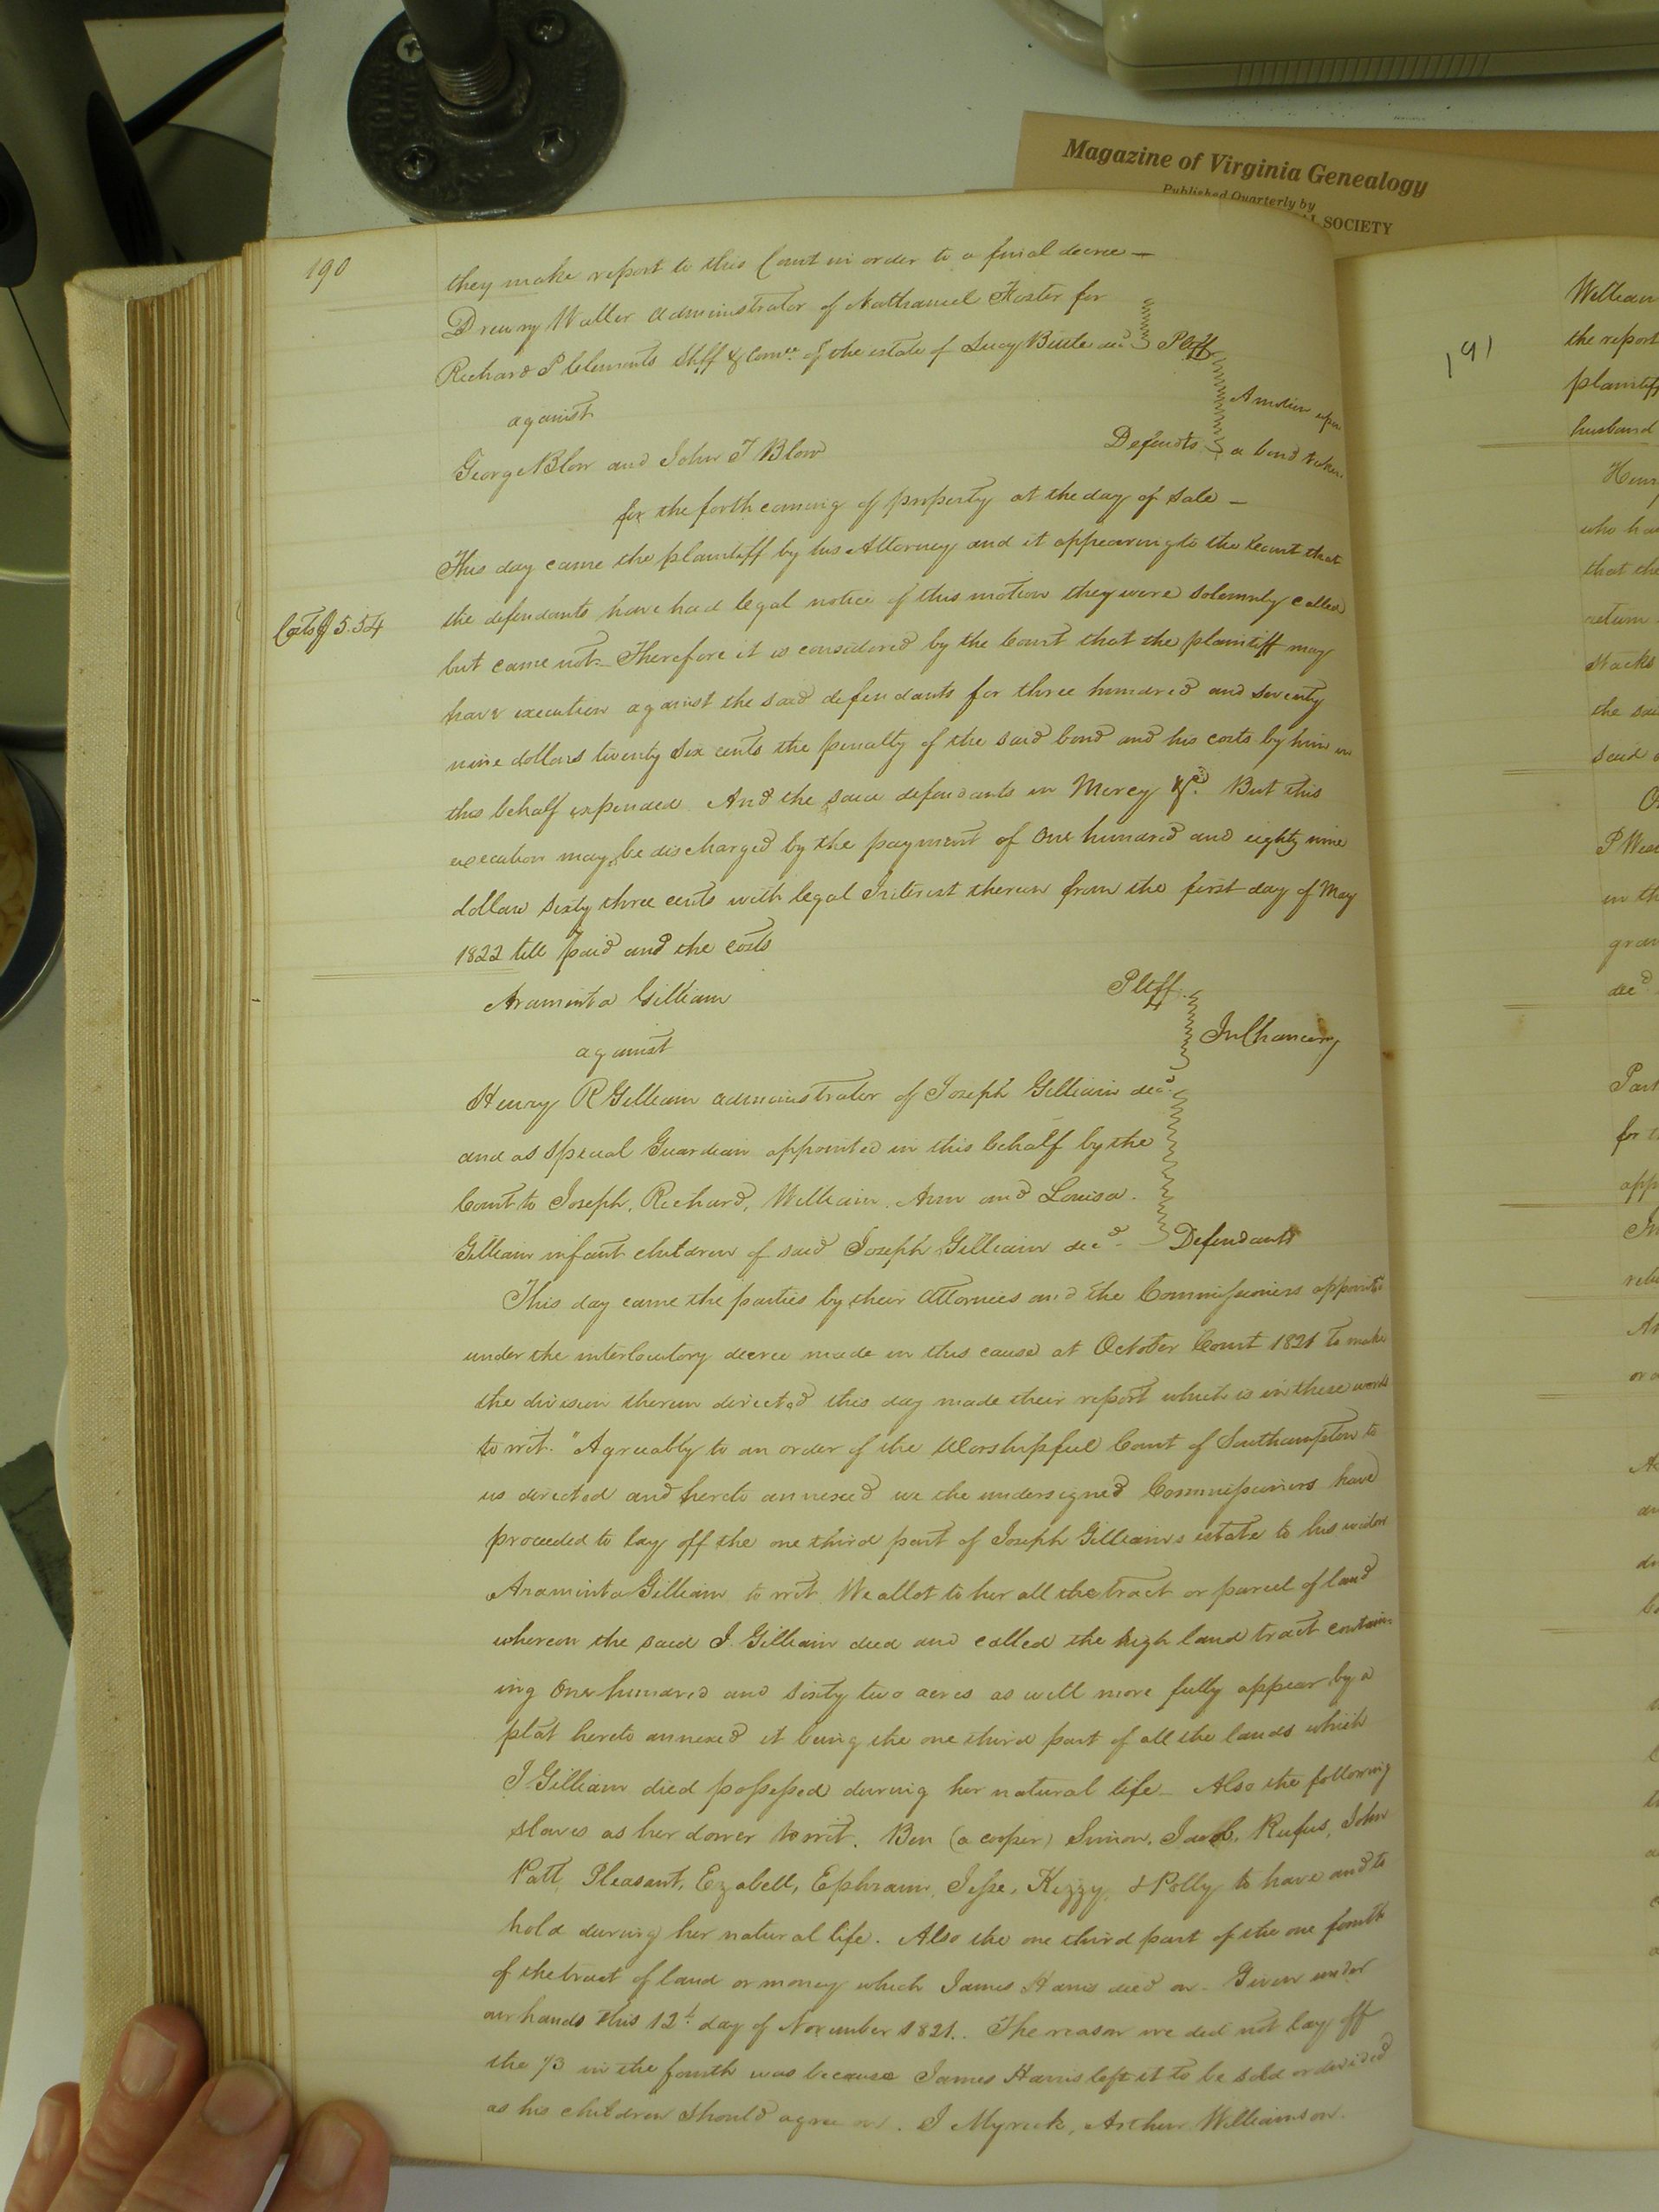 Magazine of Virginia Genealogy
Published Quarterly by
SOCIETY
190
they make report to this Court in order to a final decree —
Drewry Waller administrator of Nathaniel Foster for
Richard P Clements Shff & Comr. of the estate of Lucy decd Pltff
against A motion upon
George Blow and John T Blow Defendts a bond taken
for the forth coming of property at the day of sale —
This day came the plaintiff by his Attorney and it appearing to the Court that
the defendants have had legal notice of this motion they were solemnly called
Costs $ 5.54
but came not. Therefore it is considered by the Court that the plaintiff may
have execution against the said defendants for three hundred and seventy
nine dollars twenty six cents the penalty of the said bond and his costs by him in
this behalf expended And the said defendants in Mercy &c. But this
execution may be discharged by the payment of One hundred and eighty nine
dollars sixty three cents with legal Interest thereon from the first day of May
1822 till paid and the costs
Araminta Gilliam Pltff.
against In Chancery
Henry R Gilliam administrator of Joseph Gilliam decd.
and as special Guardian appointed in this behalf by the
Court to Joseph, Richard, William, Ann and Louisa.
Gilliam infant children of said Joseph Gilliam decd. Defendants
This day came the parties by their Attornies and the Commissioners appointd
under the interlocutory decree made in this cause at October Court 1821 to make
the division therein directed this day made their report which is in these words
to wit. "Agreeably to an order of the Worshipful Court of Southampton to
us directed and hereto annexed we the undersigned Commissioners have
proceeded to lay off the one third part of Joseph Gilliams estate to his widow
Araminta Gilliam to wit We allot to her all the tract or parcel of land
whereon the said J. Gilliam died and called the high land tract contain
ing One hundred and sixty two acres as will more fully appear by a
plat hereto annexed it being the one third part of all the lands which
J Gilliam died possessed during her natural life — Also the following
slaves as her dower to wit. Ben (a cooper) Simon, Jacob, Rufus, John
Patt, Pleasant, Ezabell, Ephraim, Jesse, Kezzy, & Polly to have and to
hold during her natural life. Also the one third part of the one fourth
of the tract of land or money which James Harris died on. Given under
our hands this 12t. day of November 1821. The reason we did not lay off
the 1/3 in the fourth was because James Harris left it to be sold or divided
as his children should agree on. J Myrick, Arthur Williamson.
191
William
the report
plaintiff
husband
who ha
that the
return
Stacks
the sai
said
P Wes
in th
gran
decd
Part
for t
app